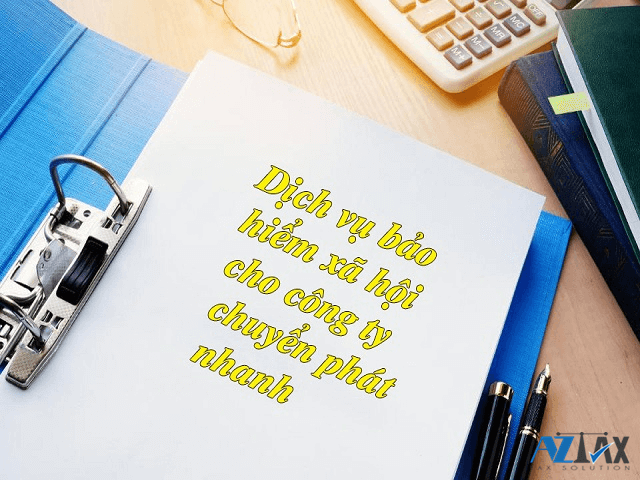 Dịch vụ bảo
hiểm xã hội
cho công ty
chuyển phát
nhanh
AZTAX
AX SOLUTION